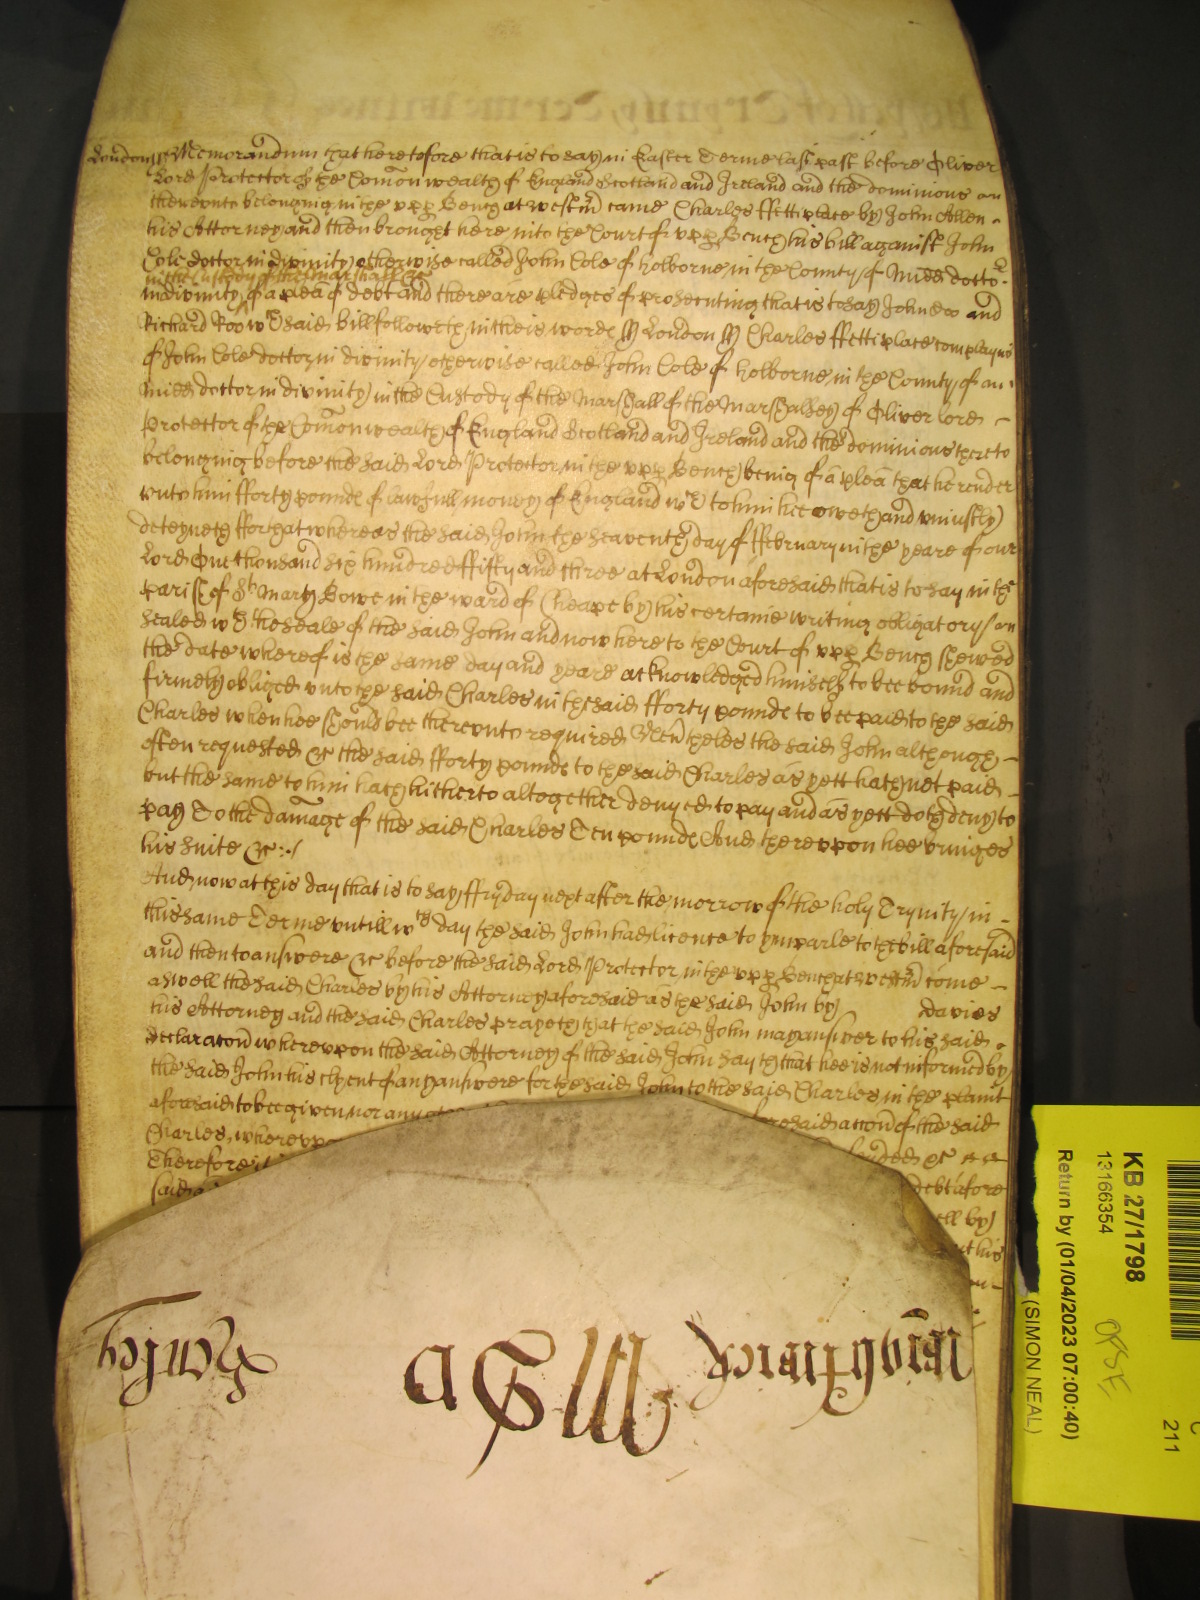 London ss Memorandum that heretofore that is to say in Easter Terme last past before Oliver
Lord Protector of the Comon wealth of England Scotland and Ireland and the dominions
thereunto belonging in the upp Bench at Westm came Charles ffettiplace by John Allen
his Attorney and then brought here into the Court of upp Bench his bill against John
Cole doctor in divinity otherwise called John Cole of Holborne in the County of Midd doctor
in the Custody of the Marshall &c
in divinity of a plea of debt and there are pledges of prosecuting that is to say John doo and
Richard Roo wch said bill followeth in theis words ss London ss Charles ffettiplace complayns
of John Cole doctor in divinity otherwise called John Cole of Holborne in the County of
Midd doctor in divinity in the Custody of the Marshall of the Marshalsey of Oliver lord
Protector of the Comon wealth of England Scotland and Ireland and the dominions thereto
belonging before the said Lord Protector in the upp Bench being of a plea that he render
unto him fforty pounds of lawfull money of England wch to him hee oweth and uniustly
deteyneth ffor that whereas the said John the seaventh day of ffebruary in the yeare of our
Lord One thousand six hundred ffifty and three at London aforesaid that is to say in the
parish of St Mary Bowe in the ward of Cheape by his certaine writing obligatory
sealed wth the seale of the said John and now here to the Court of upp Bench shewed
the date whereof is the same day and yeare acknowledged himselfe to bee bound and
firmely obliged unto the said Charles in the said fforty pounds to bee paid to the said
Charles when hee should bee thereunto required Neverthelesse the said John although
often requested &c the said fforty pounds to the said Charles as yett hath not paid
but the same to him hath hitherto altogether denyed to pay and as yett doth deny to
pay To the damage of the said Charles Ten pounds And thereupon hee bringes
his suite &c
And now at this day that is to say ffryday next after the morrow of the holy Trynity in
this same Terme untill wch day the said John had licence to imparle to the bill aforesaid
and then to answere &c before the said Lord Protector in the upp Bench at Westm come
aswell the said Charles by his Attorney aforesaid as the said John by davies
his Attorney and the said Charles prayeth that the said John may answer to his said
declaracon whereupon the said Attorney of the said John sayth that hee is not informed by
the said John his clyent of any answere for the said John to the said Charles in the plaint
aforesaid to bee given nor any aforesaid accon of the said
Charles, whereupon &c
Therefore it
said debt afore
well by
his
KB 27/1798
13166354
Return by (01/04/2023 07:00:40)
(SIMON NEAL)
C
211